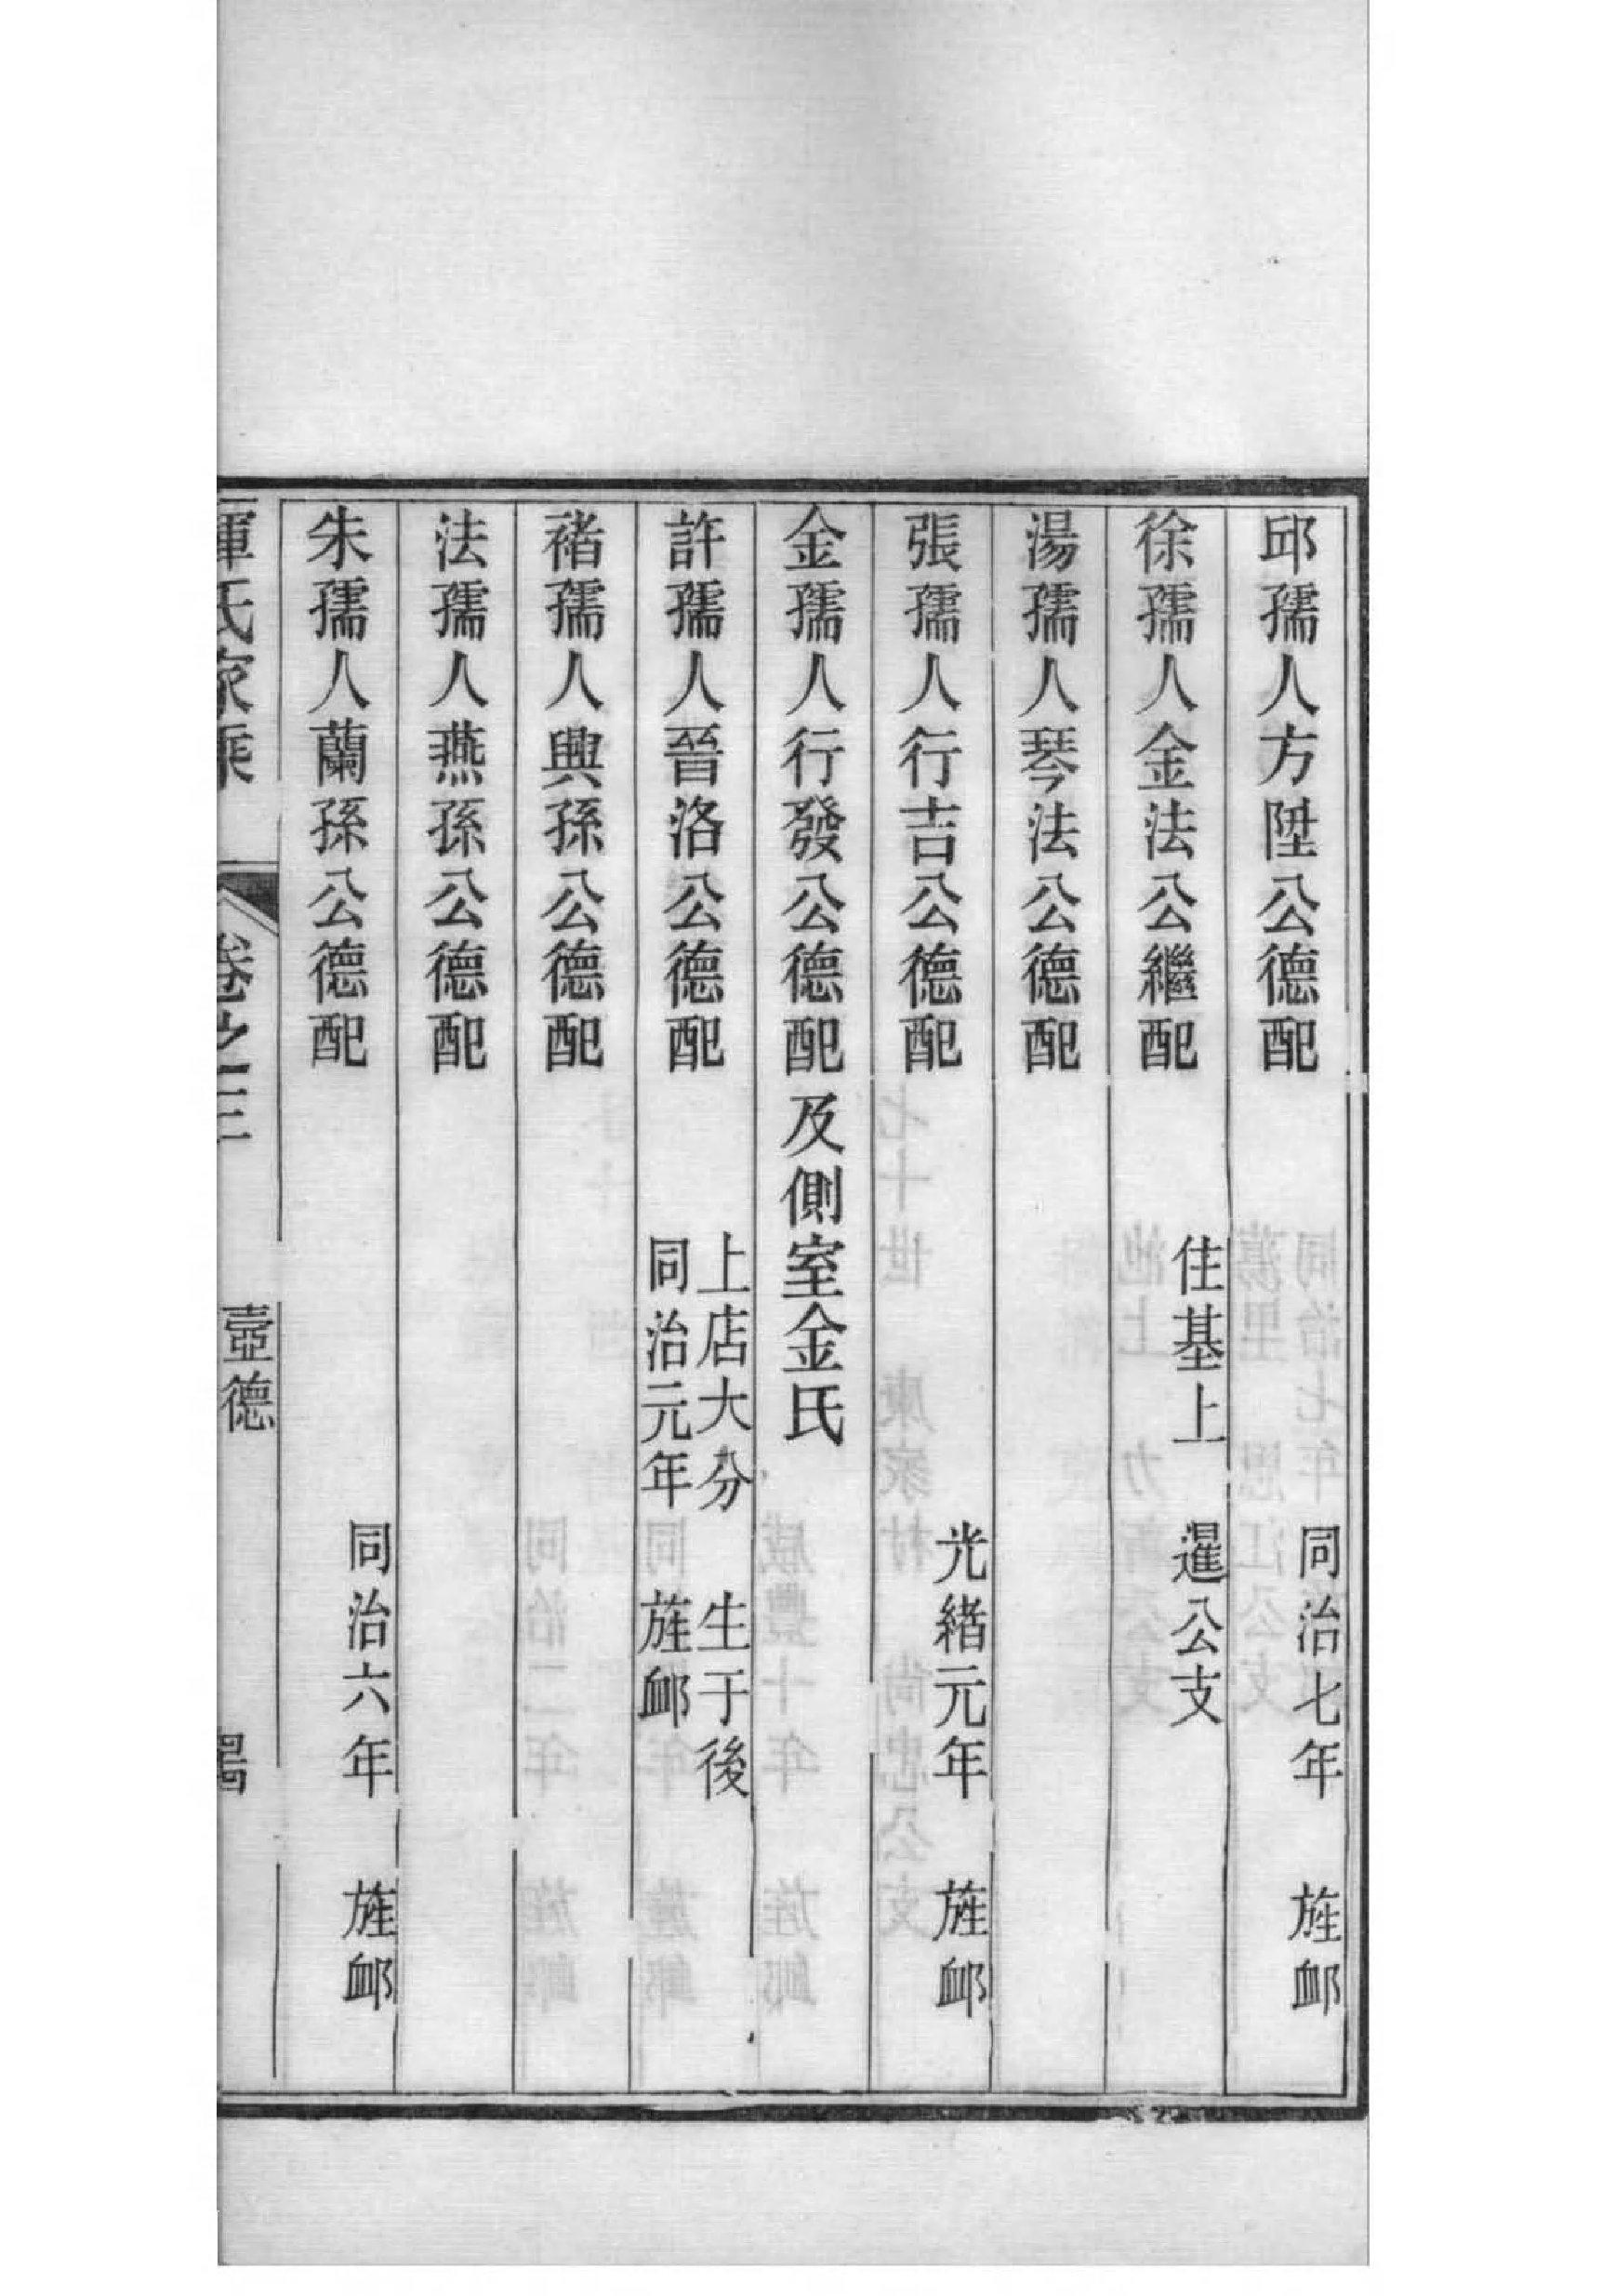 邱孺人方陞公德配　同治七年　旌卹
徐孺人金法公繼配　住基上　暹公支
湯孺人琴法公德配
張孺人行吉公德配　光緒元年　旌卹
金孺人行發公德配及側室金氏
許孺人晉洛公德配　上店大分　生于後
同治元年　旌卹
褚孺人興孫公德配
法孺人燕孫公德配
朱孺人蘭孫公德配　同治六年　旌卹
氏家乘　卷之三　壼德